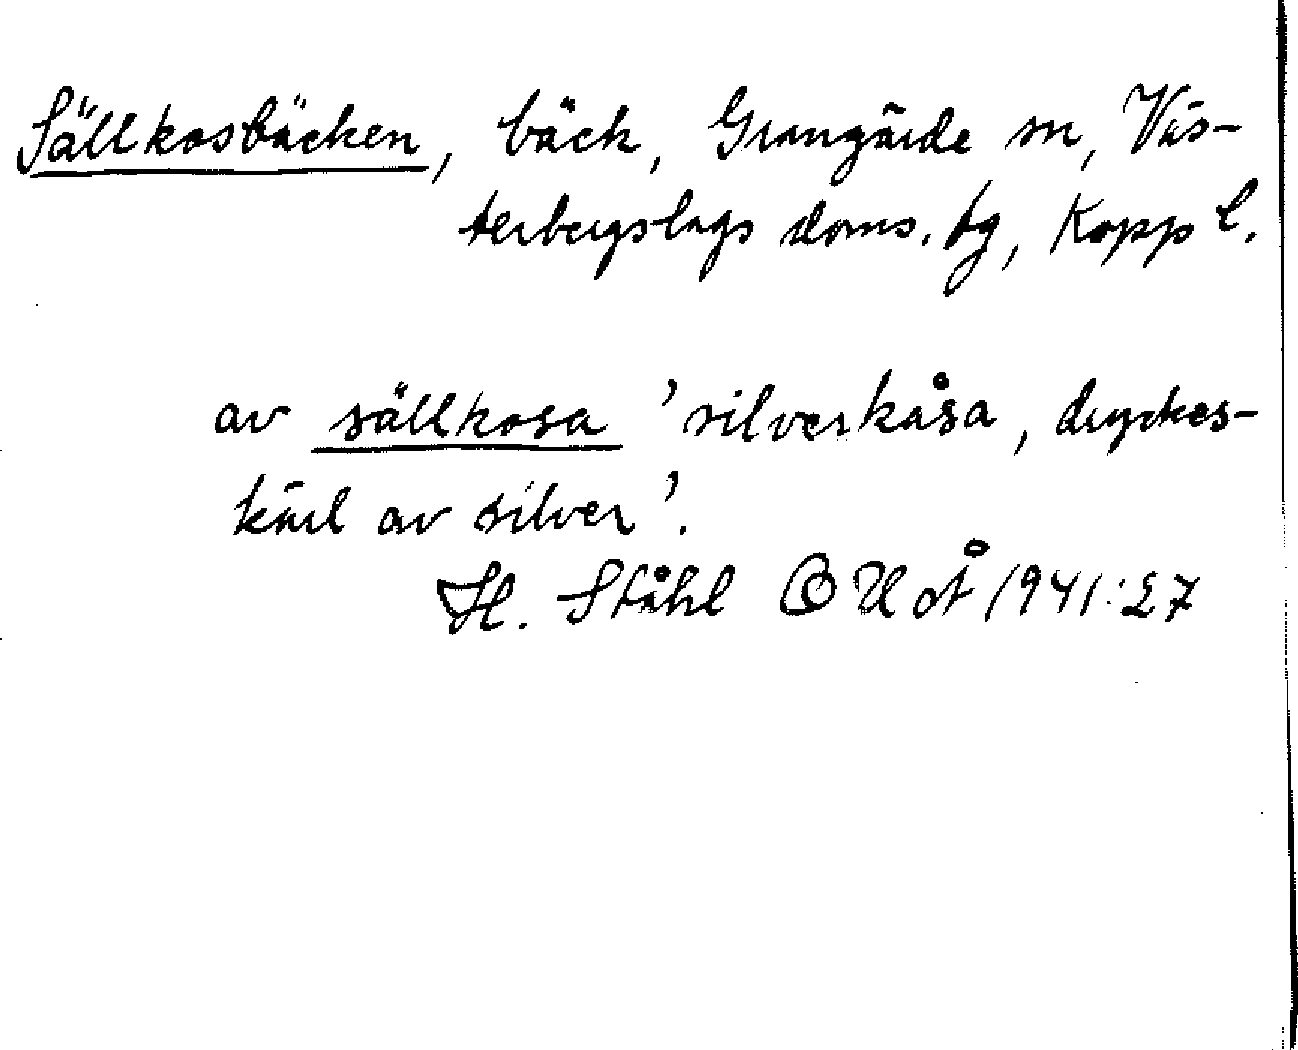 Sällkosbäcken, bäck, Grangärde sn, Väs-
terbergslags doms. tg, Kopp l.
av sällkosa 'silverkåsa, dryckes-
kärl av silver'.
H. Ståhl OUÅ 1941:27